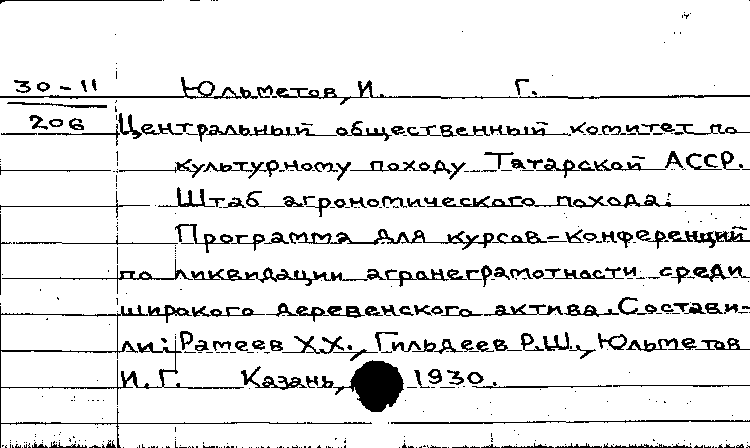 30-11 Юльметов, И. Г.
206 Центральный общественный комитет по
культурному походу Татарской АССР.
Штаб агрономического похода:
Программа для курсов-конференций
по ликвидации агранеграмотности среди
широкого деревенского актива. Состави-
ли: Рамеев Х.Х., Гильдеев Р.Ш., Юльметов
И.Г. Казань, 1930.